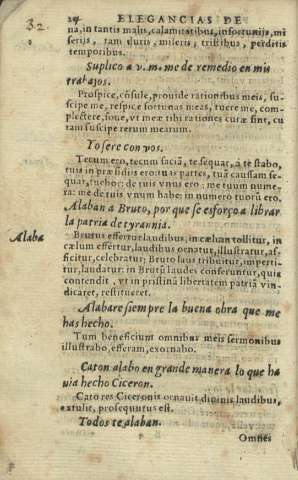 32
24 ELEGANCIAS DE
na, in tantis malis, calamitatibus, infortunijs, mi
serijs, tam duris, miseris, tristibus, perditis
temporibus.
Suplico a v. m. me de remedio en mis
trabajos.
Prospice, cõsule, prouide rationibus meis, su-
scipe me, respice fortunas meas, tuere me, com-
plectere, foue, vt meæ tibi rationes curæ sint, cu
ram suscipe rerum mearum.
Yo sere con vos.
Tecum ero, tecum faciã, te sequar, à te stabo,
tuis in præsidiis ero: tuas partes, tuã caussam se-
quar, tuebor: de tuis vnus ero: me tuum nume-
ra: me de tuis vnum habe: in numero tuorũ ero.
Alaban a Bruto, por que se esforço a librar
la patria de tyrannia.
Alaba
Brutus effertur laudibus, in cælum tollitur, in
cælum effertur, laudibus ornatur, illustratur, af-
ficitur, celebratur; Bruto laus tribuitur, imperti-
tur, laudatur: in Brutũ laudes conferuntur, quia
contendit, vt in pristinã libertatem patriã vin-
dicaret, restitueret.
Alabare siempre la buena obra que me
has hecho.
Tum beneficium omnibus meis sermonibus
illustrabo, efferam, exornabo.
Caton alabo en grande manera lo que ha
uia hecho Ciceron.
Cato res Ciceronis ornauit diuinis laudibus,
extulit, prosequutus est.
Todos te alaban.
Omnes